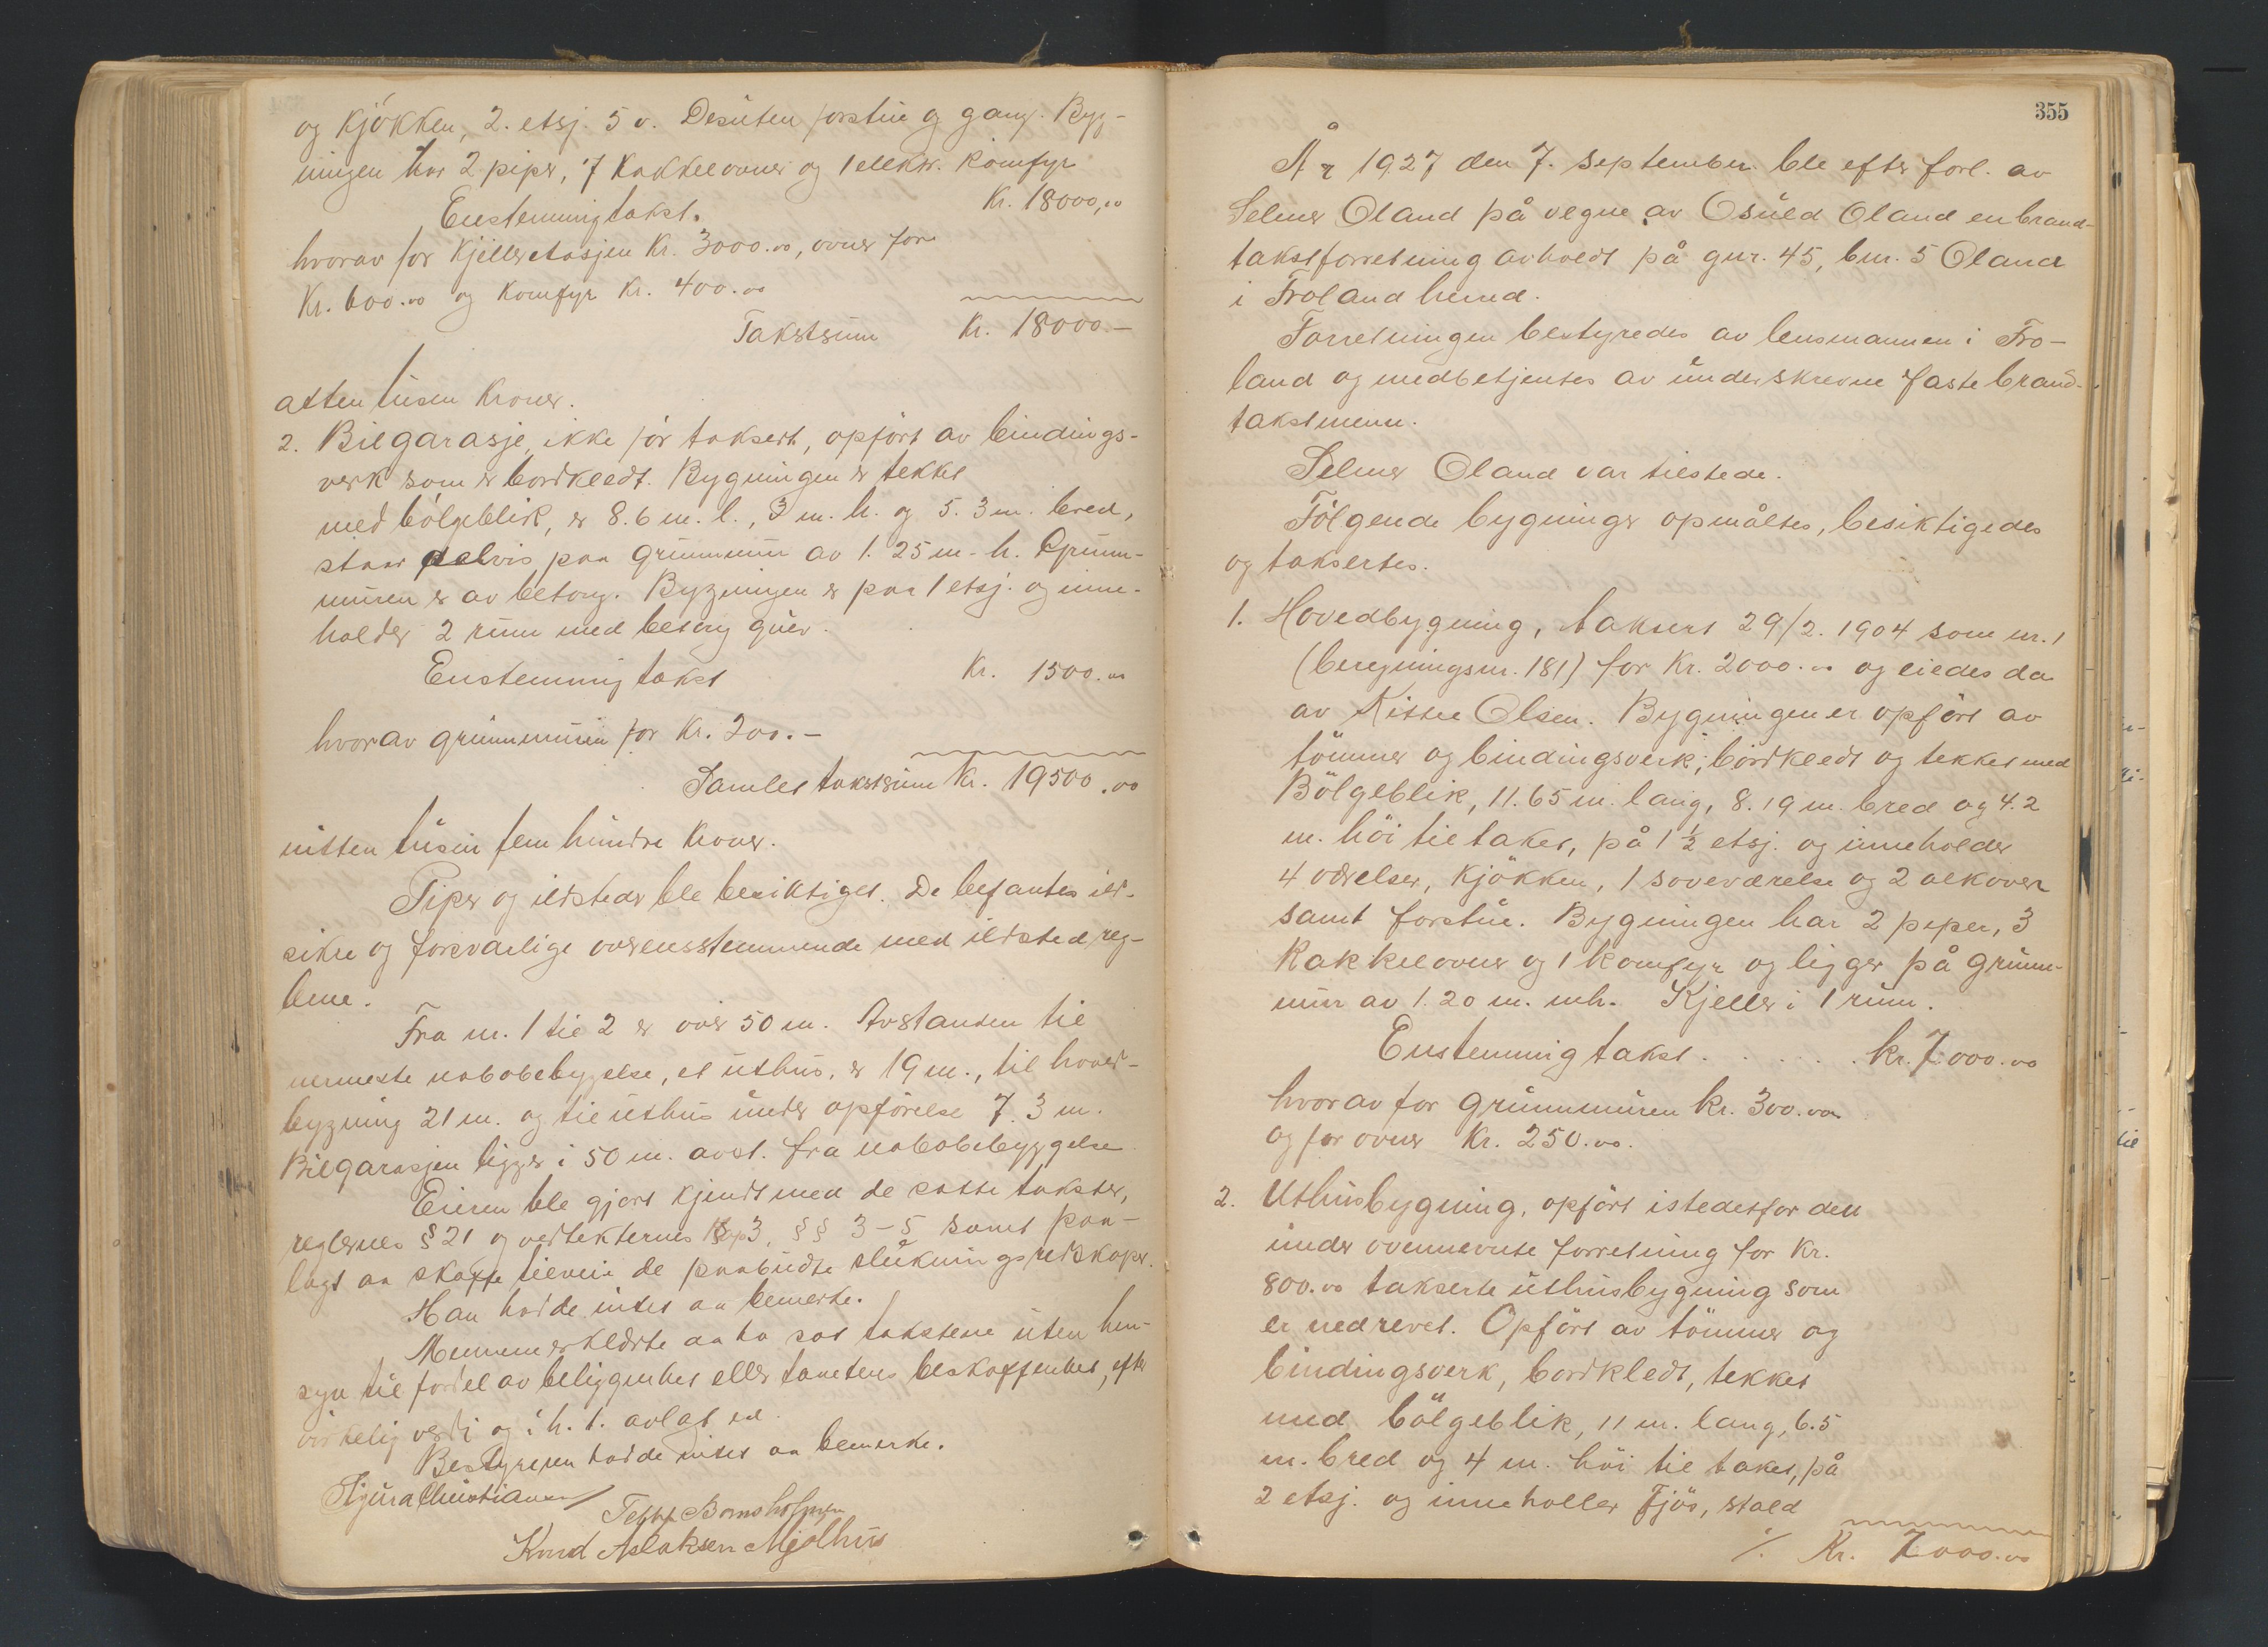 og kjökken, 2. etsj. 5 v. Desuten forstue og gang. Byg-
ningen har 2 piper, 7 kakkelovner og 1 elektr. komfyr
Enstemmig takst. Kr. 18000,00
hvorav for kjelleretasjen Kr. 3000.00, ovner for
Kr. 600.00 og komfyr Kr. 400.00
Takstsum Kr. 18000 –
atten tusen kroner.
2. Bilgarasje, ikke för taksert, opfört av bindings-
verk som er bordkledt. Bygningen er tekket
med bölgeblik, er 8.6 m. l., 3 m. h. og 5.3 m. bred,
staar delvis paa grunnmur av 1.25 m. h. Grunn-
muren er av betong. Bygningen er paa 1 etsj. og inne-
holder 2 rum med betong gulv.
Enstemmig takst Kr. 1500.00
hvorav grunnmuren for Kr. 200. –
Samlet takstsum Kr. 19500.00
nitten tusen fem hundre kroner.
Piper og ildsteder ble besiktiget. De befantes ild-
sikre og forsvarlige overensstemmende med ildsted reg-
lene.
Fra nr. 1 til 2 er over 50 m. Avstanden til
nermeste nabobebyggelse, et uthus, er 19 m., til hoved-
bygning 21 m. og til uthus under opförelse 7.3 m.
Bilgarasjen ligger i 50 m. avst. fra nabobebyggelse
Eieren ble gjort kjendt med de satte takster,
reglernes § 21 og vedtekternes Kap 3, §§ 3 – 5 samt paa-
lagt aa skaffe tilveie de paabudte slukningsredskaper.
Han hadde intet aa bemerke.
Mennene erklærte aa ha sat takstene uten hen-
syn til fordel av beliggenhet eller tomtens beskaffenhet, efter
virkelig verdi og i h. t. avlagt ed.
Bestyreren hadde intet aa bemerke.
Sigurd Christiansen / Bornsholmen
Knud Aslaksen Mjølhus
355
År 1927 den 7. september ble efter forl. av
Selmer Oland på vegne av Osuld Oland en brand-
takstforretning avholdt på gnr. 45, bnr. 5 Oland
i Froland herred.
Forretningen bestyredes av lensmannen i Fro-
land og medbetjentes av underskrevne faste brand-
takstmenn.
Selmer Oland var tilstede.
Fölgende bygninger opmåltes, besiktigedes
og taksertes.
1. Hovedbygning, taksert 29/2. 1904 som nr. 1
(beregningsnr. 181) for Kr. 2000.00 og eiedes da
av Kittel Olsen. Bygningen er opfört av
tömmer og bindingsverk, bordkledt og tekket med
Bölgeblik, 11.65 m. lang, 8.19 m. bred og 4.2
m. höi til taket, på 1 ½ etsj. og inneholder
4 værelser, kjökken, 1 soveværelse og 2 alkover
samt forstue. Bygningen har 2 piper, 3
kakkelovner og 1 komfyr og ligger på grunn-
mur av 1.20 m. mh. Kjeller i 1 rum.
Enstemmig takst . . . . . . kr. 7000.00
hvorav for grunnmuren kr. 300.00
og for ovner Kr. 250.00.
2. Uthusbygning, opfört istedetfor den
under ovennevnte forretning for Kr.
800.00 takserte uthusbygning som
er nedrevet. Opfört av tömmer og
bindingsverk, bordkledt, tekket
med bölgeblik, 11 m. lang, 6.5
m. bred og 4 m. höi til taket, på
2 etsj. og inneholler fjös, stald
./. Kr. 7000.00